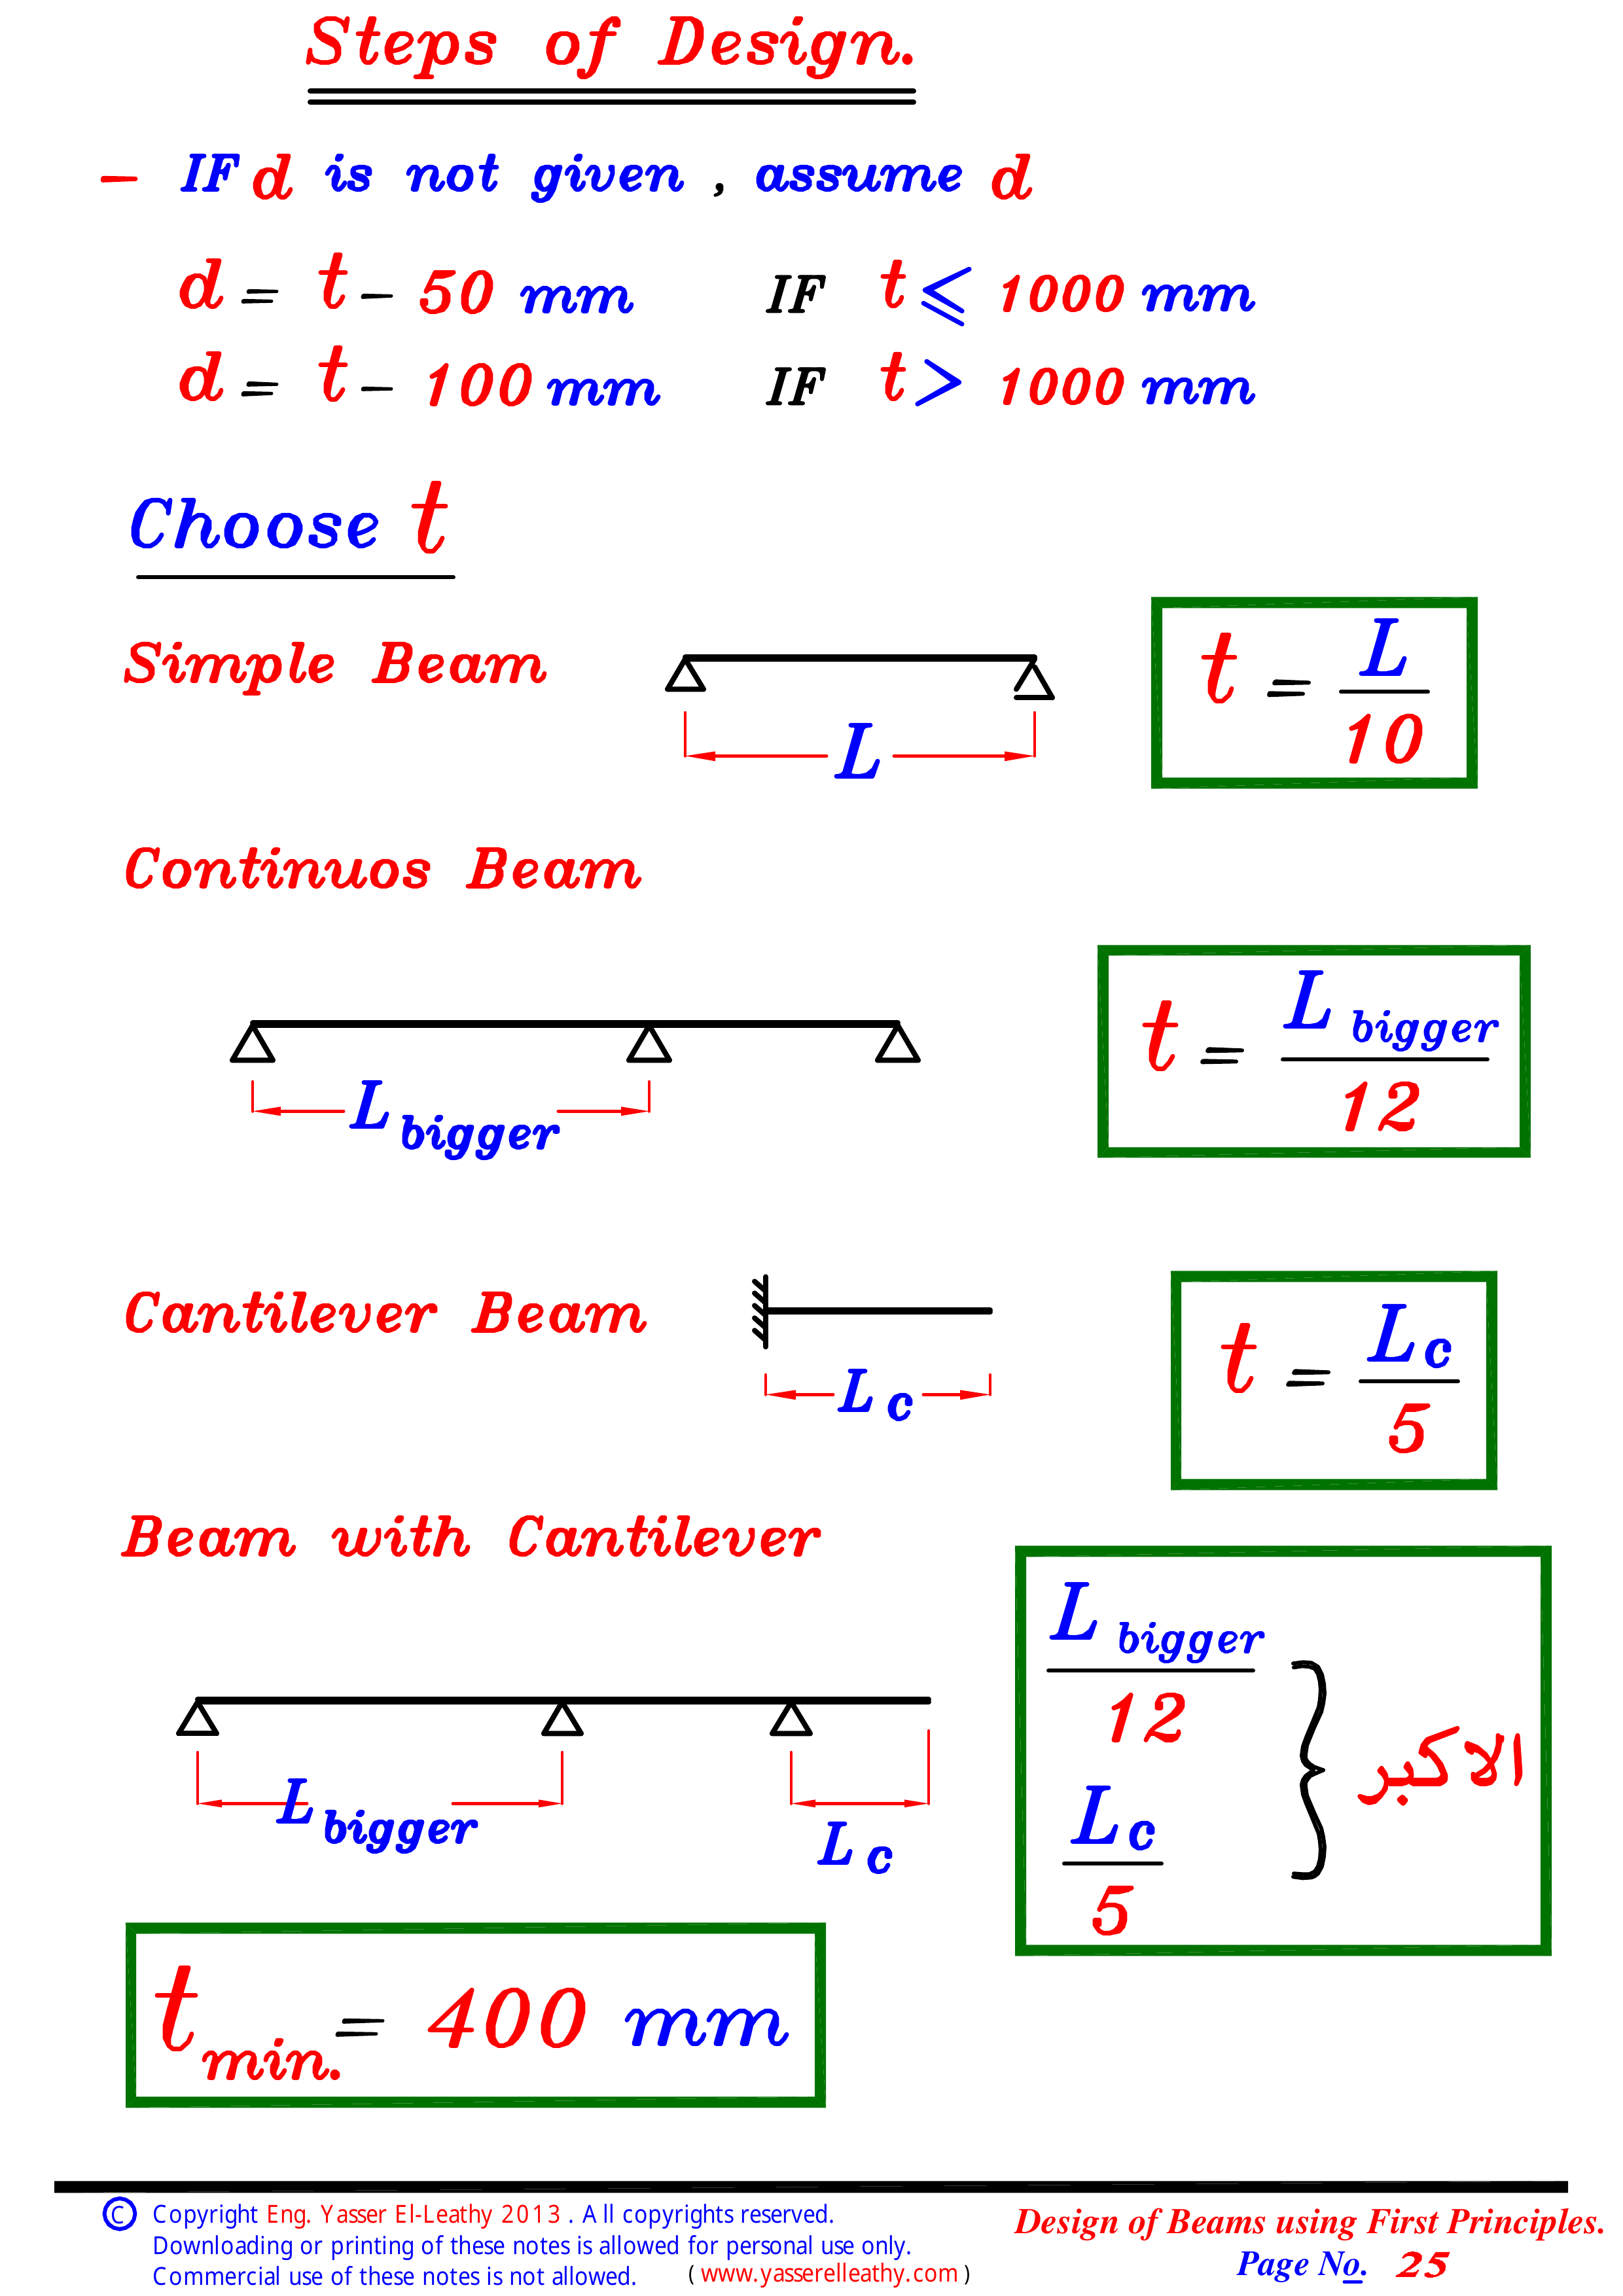 Steps of Design.
- IF d is not given , assume d
d = t - 50 mm IF t ⩽ 1000 mm
d = t - 100 mm IF t > 1000 mm
Choose t
Simple Beam
L
t = L / 10
Continuos Beam
L bigger
t = L bigger / 12
Cantilever Beam
L c
t = L c / 5
Beam with Cantilever
L bigger
L c
L bigger / 12
L c / 5
الاكبر
t min. = 400 mm
© Copyright Eng. Yasser El-Leathy 2013 . All copyrights reserved.
Downloading or printing of these notes is allowed for personal use only.
Commercial use of these notes is not allowed. ( www.yasserelleathy.com )
Design of Beams using First Principles.
Page No. 25